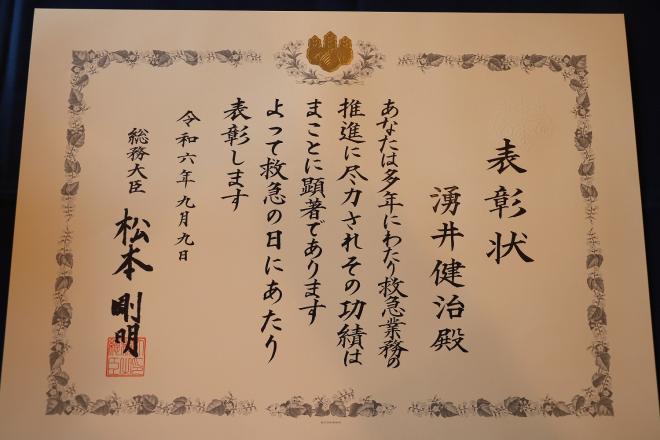 表彰状
湧井健治殿
あなたは多年にわたり救急業務の
推進に尽力されその功績は
まことに顕著であります
よって救急の日にあたり
表彰します
令和六年九月九日
総務大臣 松本剛明